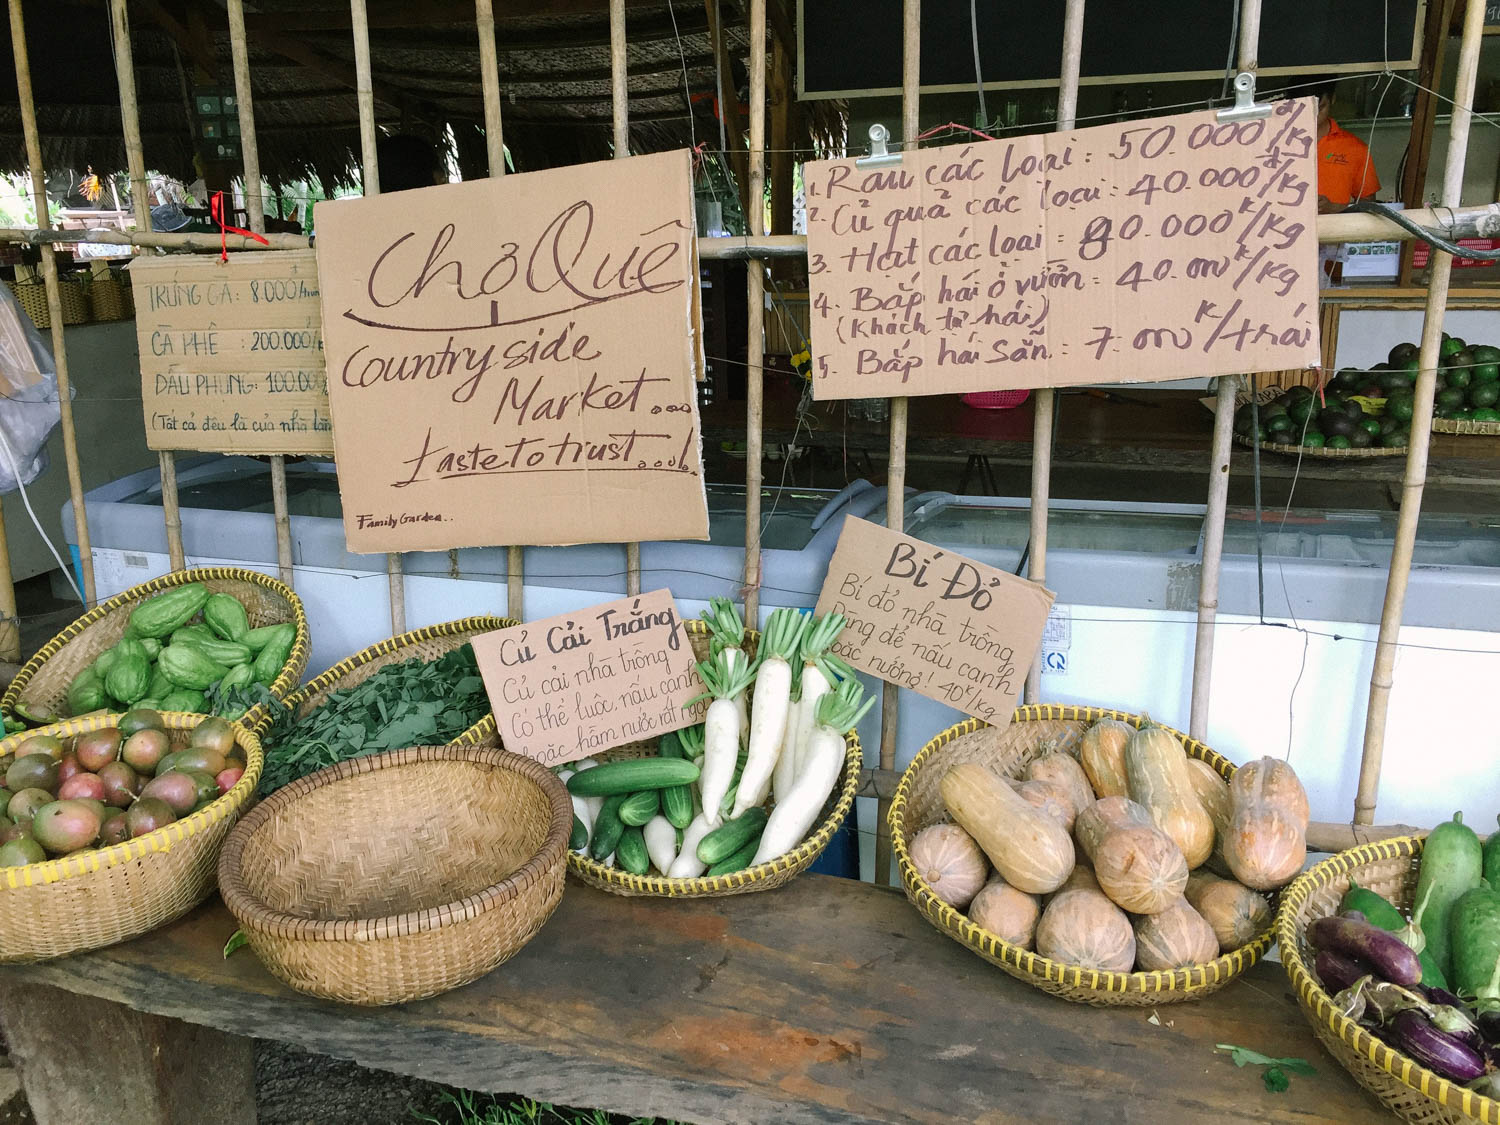 TRỨNG GÀ: 8.000đ/
CÀ PHÊ : 200.000/
ĐẬU PHỤNG: 100.000
(Tất cả đều là của nhà làm
Chợ Quê
Countryside
Market...
taste to trust...!.
Family Garden..
1. Rau các loại : 50.000đ/kg
2. Củ quả các loại : 40.000đ/kg
3. Hạt các loại : 80.000k/kg
4. Bắp hái ở vườn : 40.000k/kg
(Khách tự hái)
5. Bắp hái sẵn : 7.000k/trái
Củ Cải Trắng
Củ cải nhà trồng
Có thể luộc, nấu canh
hoặc hầm nước rất ngọt
Bí Đỏ
Bí đỏ nhà trồng
Dùng để nấu canh
hoặc nướng! 40k/kg